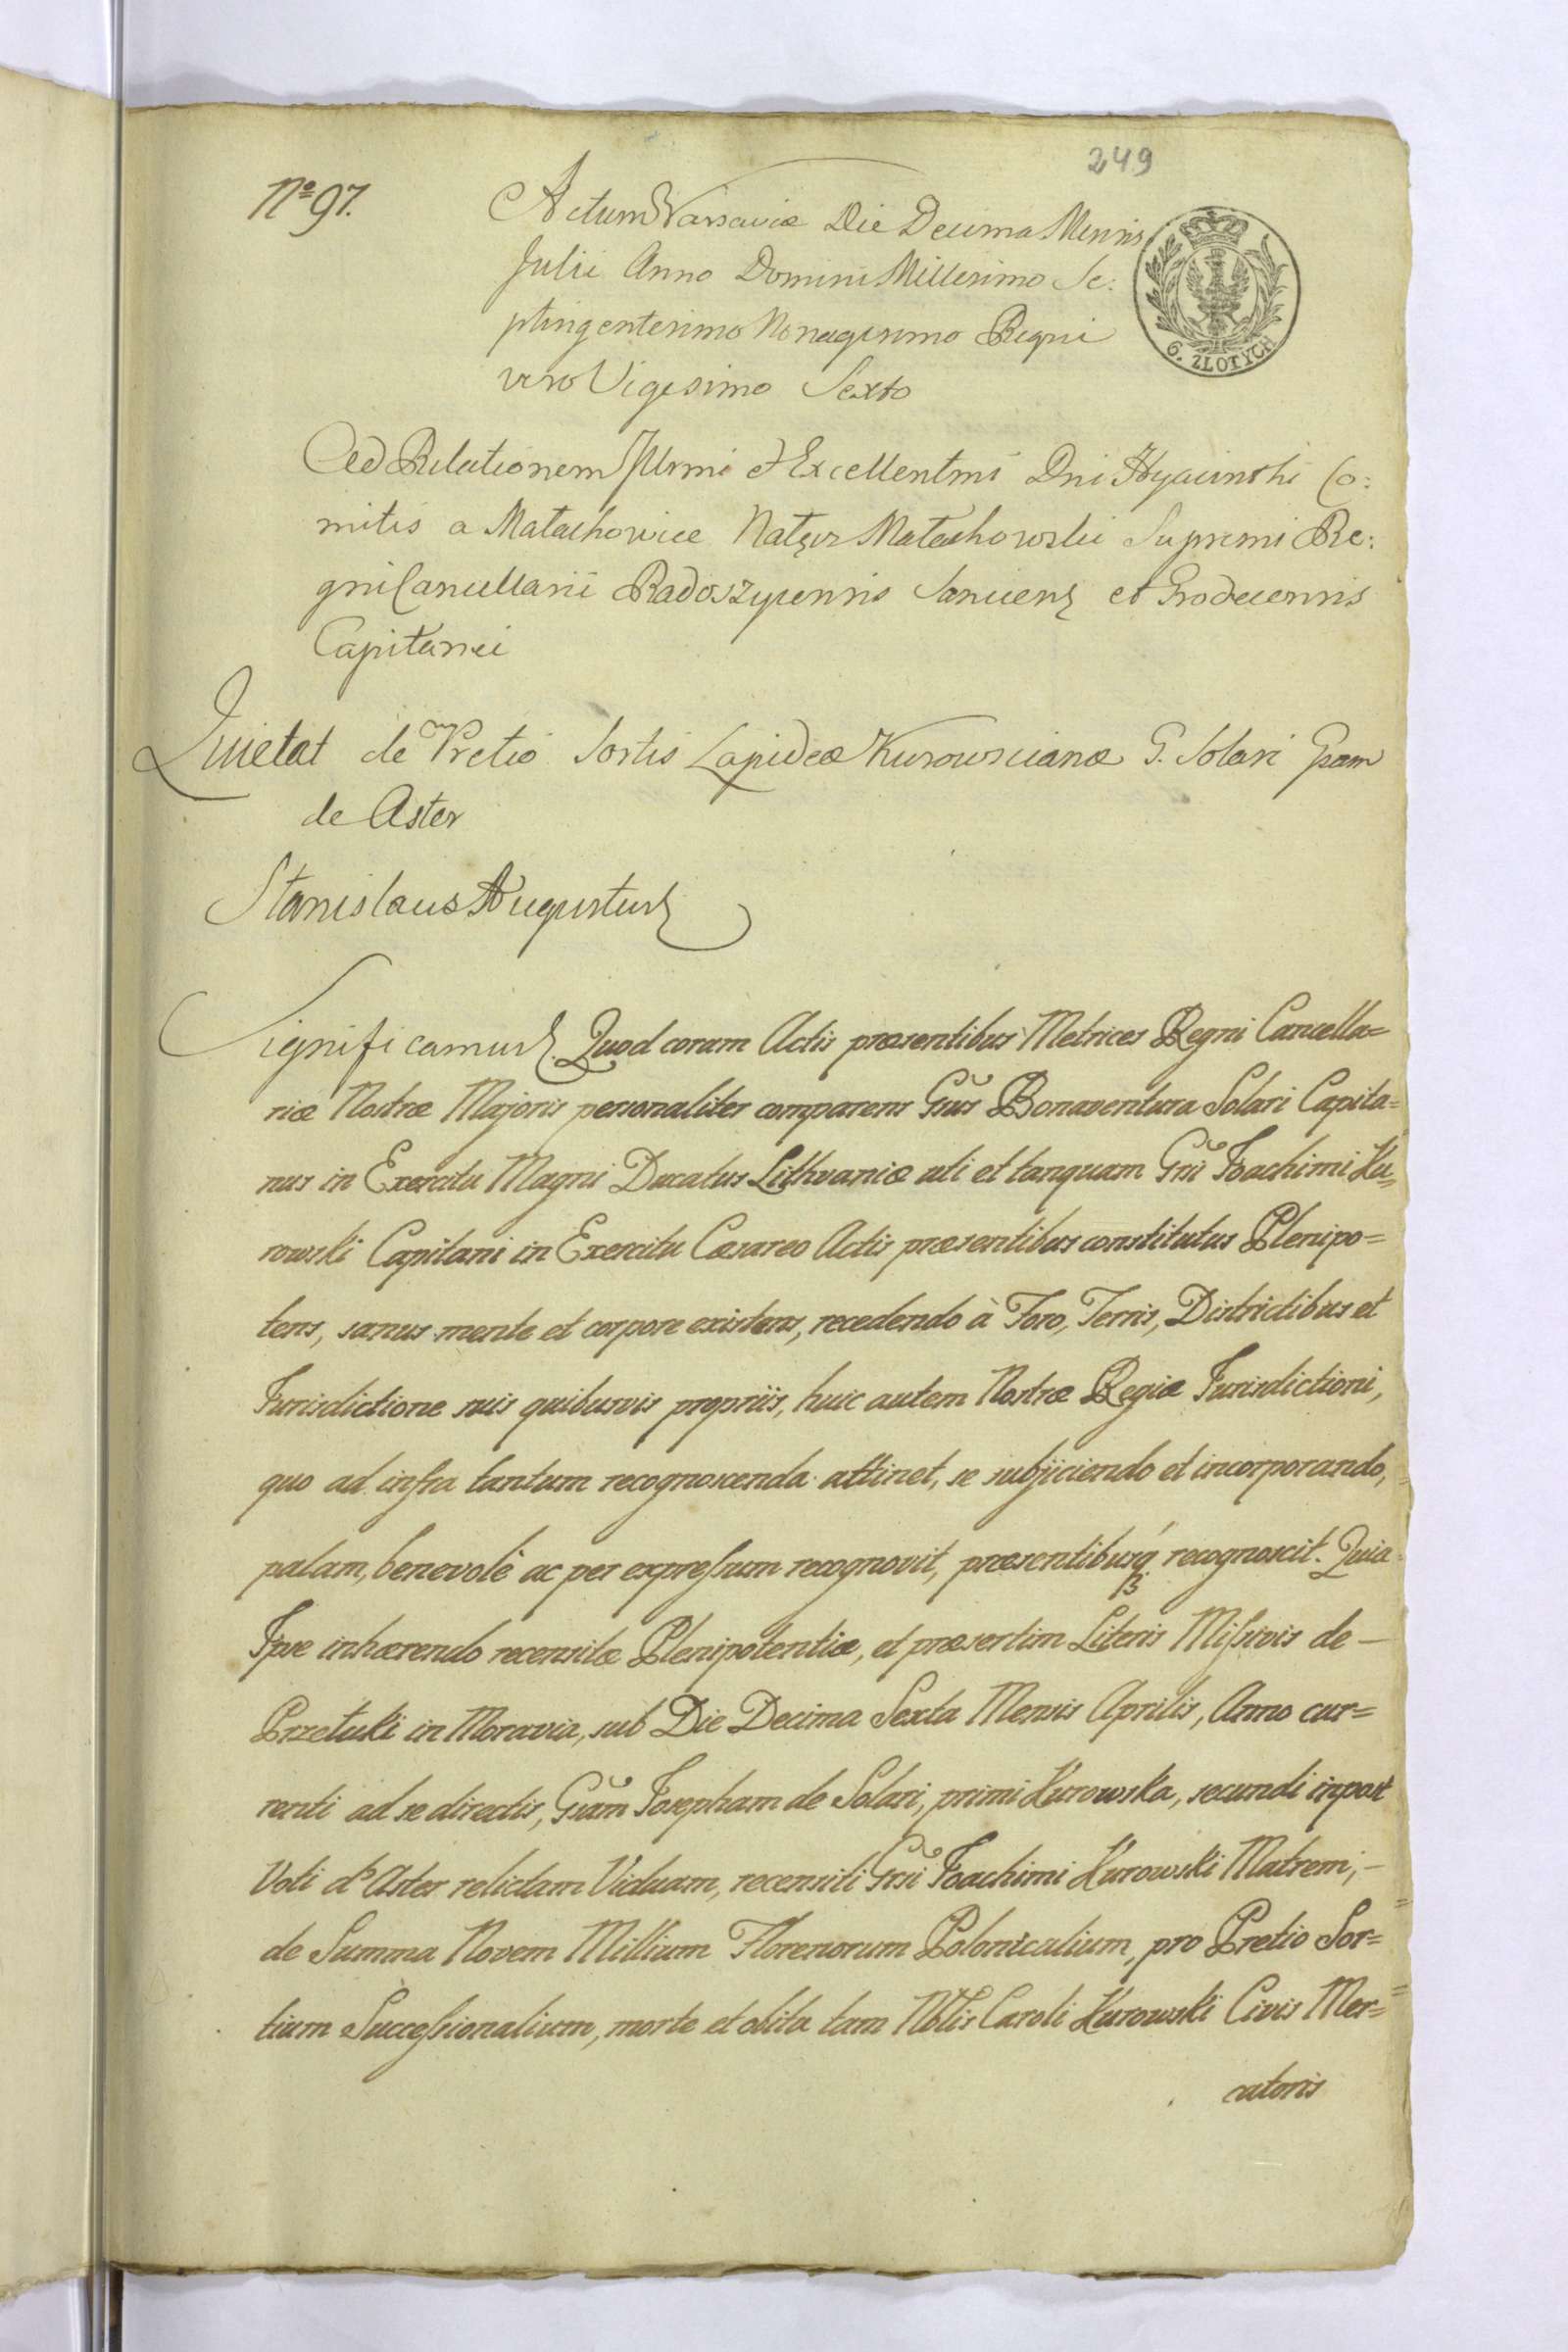 249
Nº 97.
Actum Varsaviæ Die Decima Mensis
Julii Anno Domini Millesimo Se:
ptingentesimo Nonagesimo Regni
vero Vigesimo Sexto
6. ZŁOTYCH
Ad Relationem Illrmi et Excellentmi Dni Hyacinthi Co:
mitis a Małachowice Nałęcz Małachowski Supremi Re:
gni Cancellarii Radoszycensis Sanciens et Grodecensis
Capitanei
Quietat de Pretio Sortis Lapideæ Kurowscianæ G. Solari Gsam
de Aster
Stanislaus Augustus
Significamus. Quod coram Actis præsentibus Metrices Regni Cancella=
riæ Nostræ Majoris personaliter comparens Gsus Bonaventura Solari Capita=
nus in Exercitu Magni Ducatus Lithvaniæ uti et tanquam Gsi Joachimi Ku=
rowski Capitani in Exercitu Cæsareo Actis præsentibus constitutus Plenipo=
tens, sanus mente et corpore existens, recedendo à Foro, Terris, Districtibus et
Jurisdictione suis quibusvis propriis, huic autem Nostræ Regiæ Jurisdictioni,
quo ad infra tantum recognoscenda attinet, se subjiciendo et incorporando,
palam, benevolè ac per expressum recognovit, præsentibusq́ recognoscit. Quia
Ipse inhærendo recensitæ Plenipotentiæ, et præsertim Literis Missivis de —
Przetuki in Moravia, sub Die Decima Sexta Mensis Aprilis, Anno cur=
renti ad se directis, Gsam Josepham de Solari, primi Kurowska, secundi in post
Voti d'Aster relictam Viduam, recensiti Gsi Joachimi Kurowski Matrem, —
de Summa Novem Millium Florenorum Polonicalium, pro Pretio Sor=
tium Successionalium, morte et obitu tam Nblis Caroli Kurowski Civis Mer=
catoris